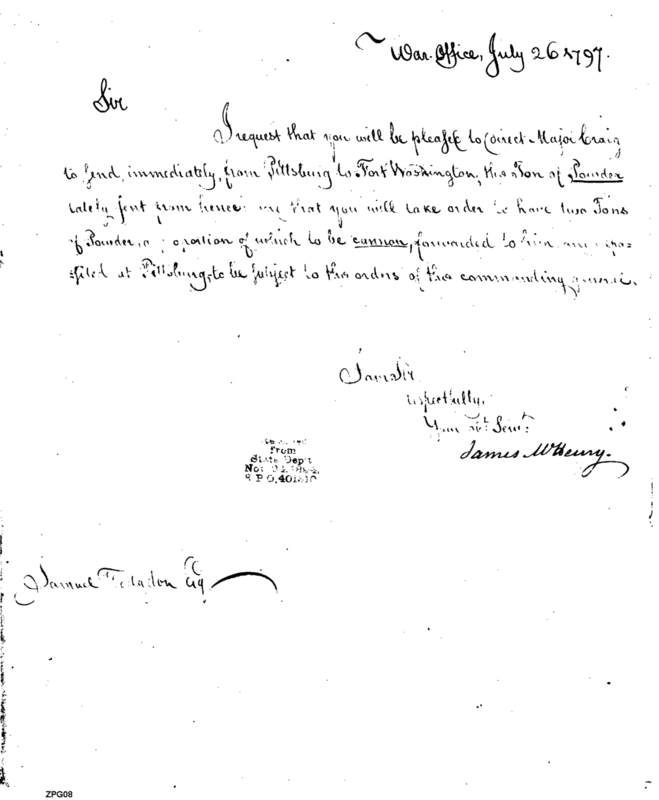 War Office, July 26 1797.
Sir
I request that you will be pleased to direct Major Craig
to send, immediately, from Pittsburg to Fort Washington, the Ton of Powder
lately sent from hence: and that you will take order to have two Tons
of Powder, a proportion of which to be cannon, forwarded to him and depo=
sited at Pittsburg, to be subject to the orders of the commanding general.
I am Sir
respectfully,
Your Obt. Servt.
James McHenry.
from
State Dep't
S P O. 401
Samuel Hodgdon Esq
ZPG08